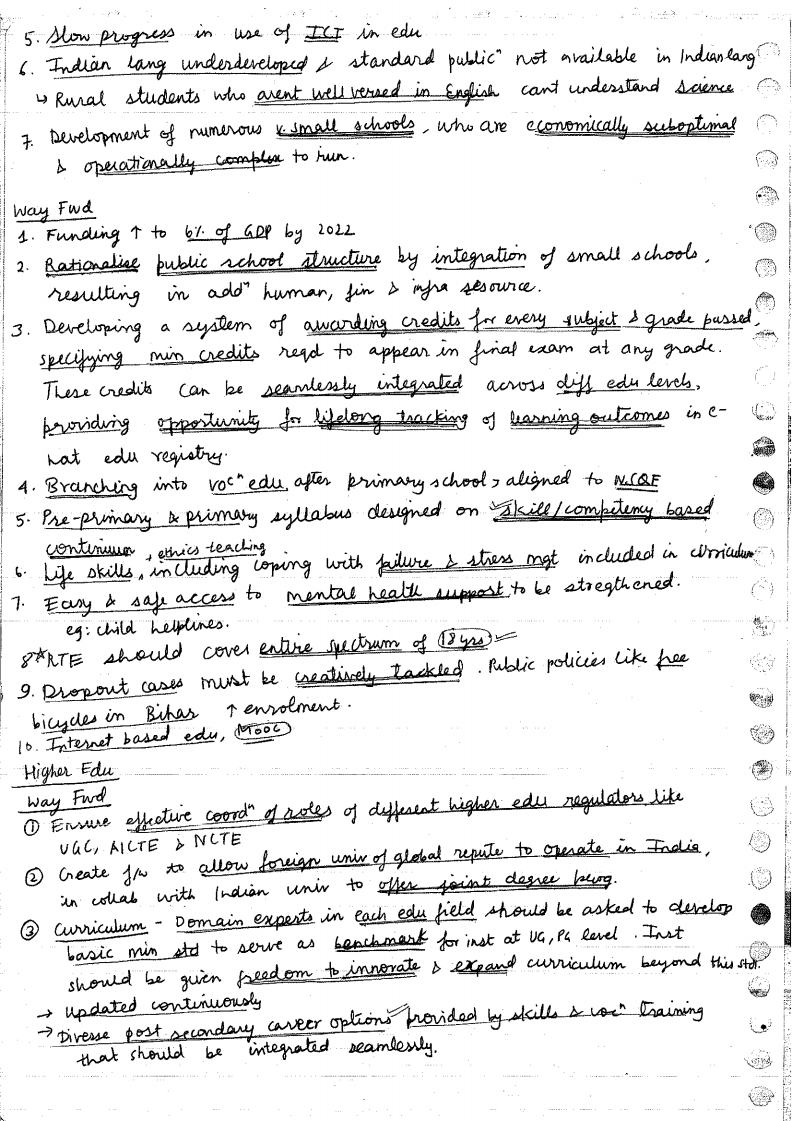 5. Slow progress in use of ICT in edu
6. Indian lang underdeveloped & standard publicⁿ not available in Indian lang
↳ Rural students who arent well versed in English cant understand science
7. Development of numerous v. small schools, who are economically suboptimal
& operationally complex to run.
Way Fwd
1. Funding ↑ to 6% of GDP by 2022
2. Rationalise public school structure by integration of small schools,
resulting in addⁿ human, fin & infra resource.
3. Developing a system of awarding credits for every subject & grade passed,
specifying min credits reqd to appear in final exam at any grade.
These credits can be seamlessly integrated across diff edu levels,
providing opportunity for lifelong tracking of learning outcomes in e-
nat edu registry.
4. Branching into vocⁿ edu after primary school, aligned to NSQF
5. Pre-primary & primary syllabus designed on skill/competency based
continuum, ethics teaching
6. Life skills, including coping with failure & stress mgt included in curriculum
7. Easy & safe access to mental health support to be stregthened.
eg: child helplines.
8* RTE should cover entire spectrum of 18 yrs
9. Dropout cases must be creatively tackled. Public policies like free
bicycles in Bihar ↑ enrolment.
10. Internet based edu, MOOC
Higher Edu
Way Fwd
① Ensure effective coordⁿ of roles of different higher edu regulators like
UGC, AICTE & NCTE
② Create f/w to allow foreign univ of global repute to operate in India,
in collab with Indian univ to offer joint degree prog.
③ Curriculum - Domain experts in each edu field should be asked to develop
basic min std to serve as benchmark for inst at UG, PG level. Inst
should be given freedom to innovate & expand curriculum beyond this std.
→ Updated continuously
→ Diverse post secondary career options provided by skills & vocⁿ training
that should be integrated seamlessly.